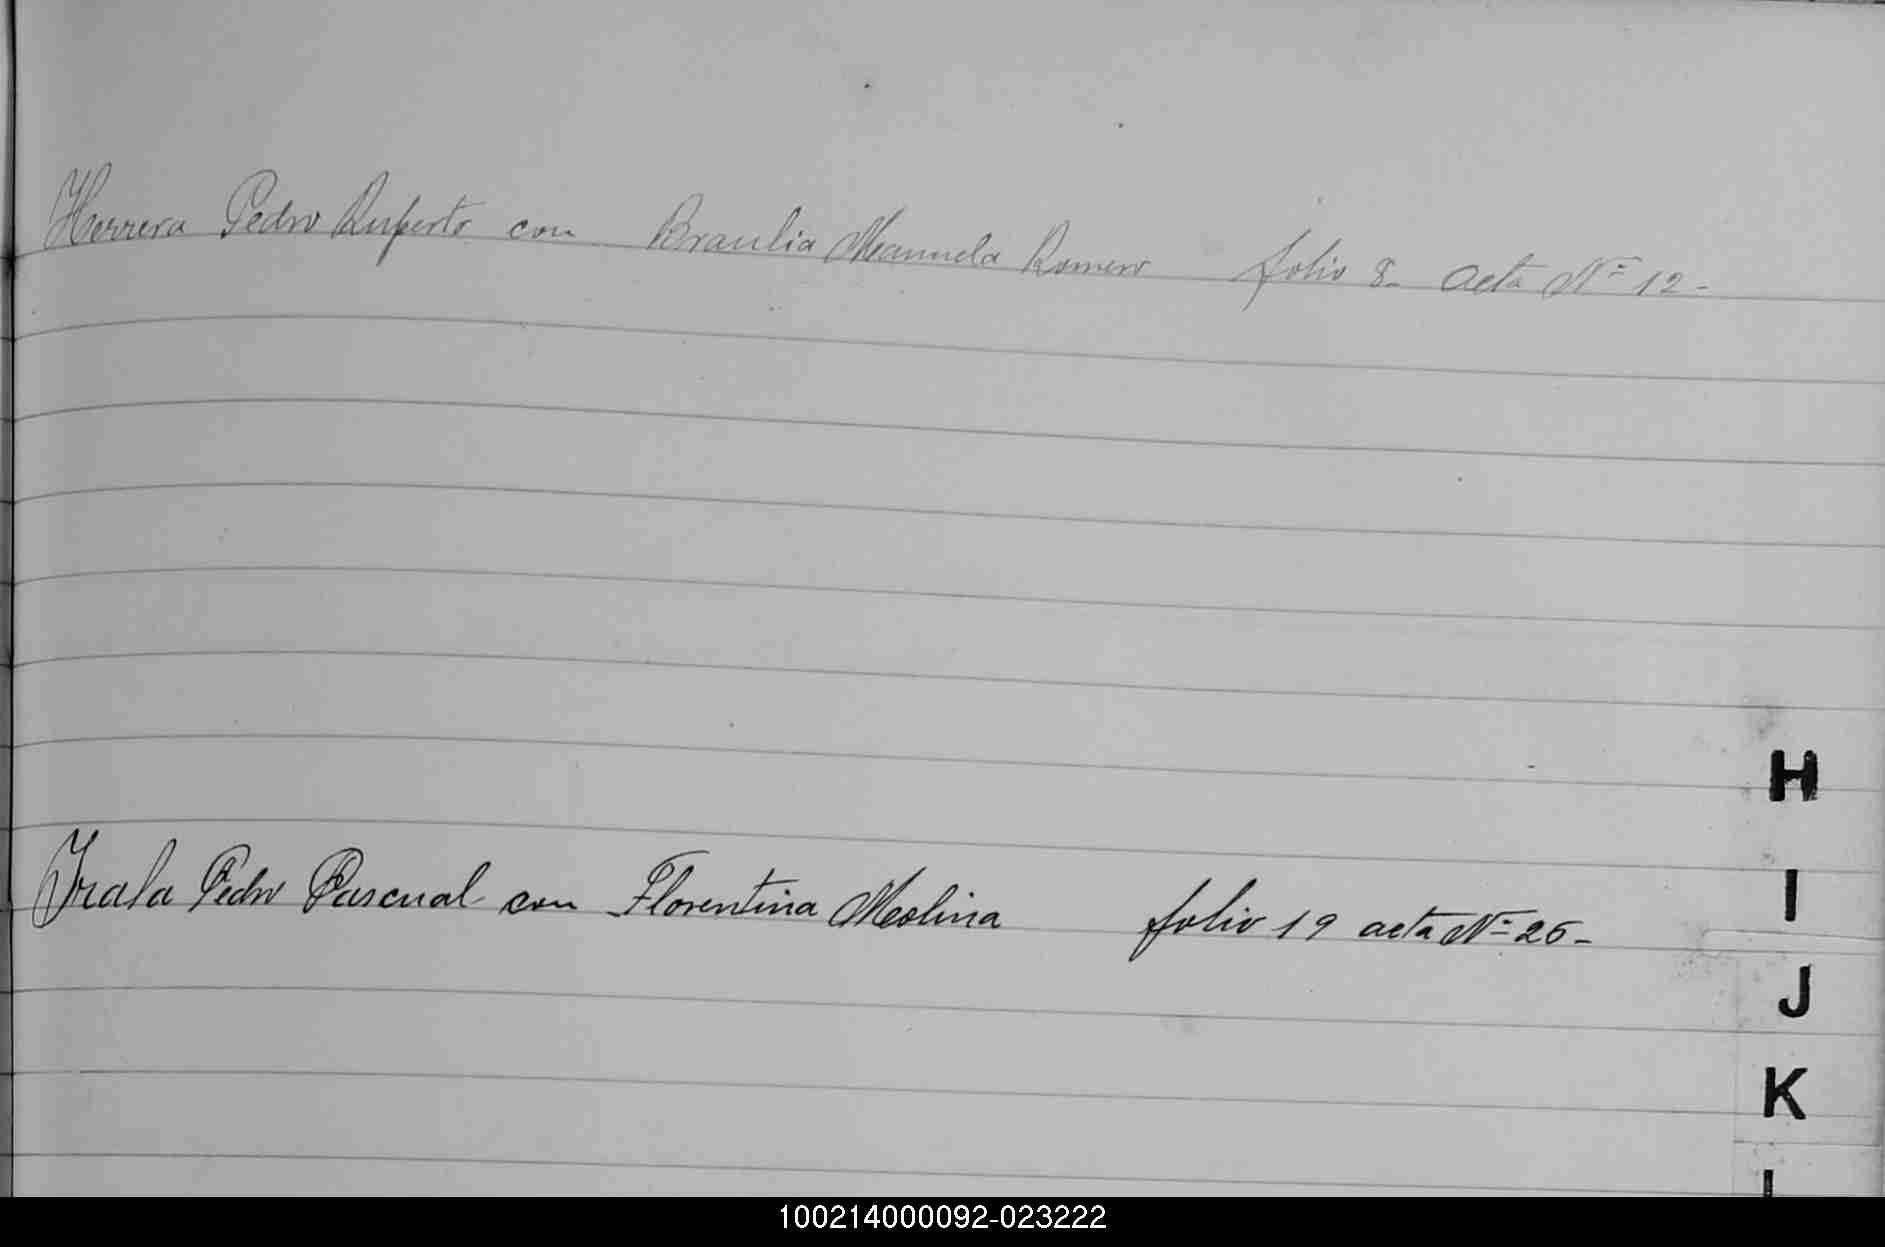 Herrera Pedro Ruperto con Braulia Manuela Romero folio 8- acta Nº 12-
H
I
Irala Pedro Pascual con Florentina Molina folio 19 acta Nº 26-
J
K
L
100214000092-023222